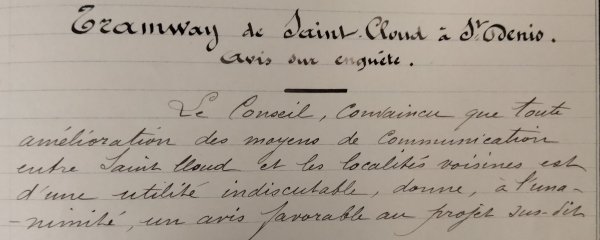 Tramway de Saint-Cloud à St Denis.
Avis sur enquête.
Le Conseil, convaincu que toute
amélioration des moyens de communication
entre Saint Cloud et les localités voisines est
d'une utilité indiscutable, donne, à l'una-
-nimité, un avis favorable au projet sus-dit